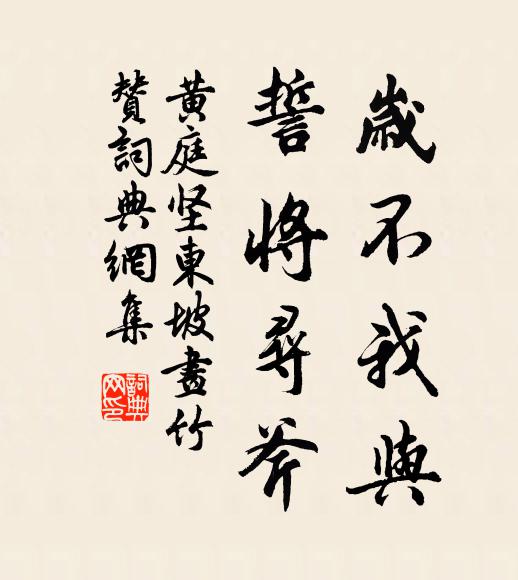 歲不我與
誓將尋斧
黄庭坚東坡畫竹
賛詞典網集
詞典
网印